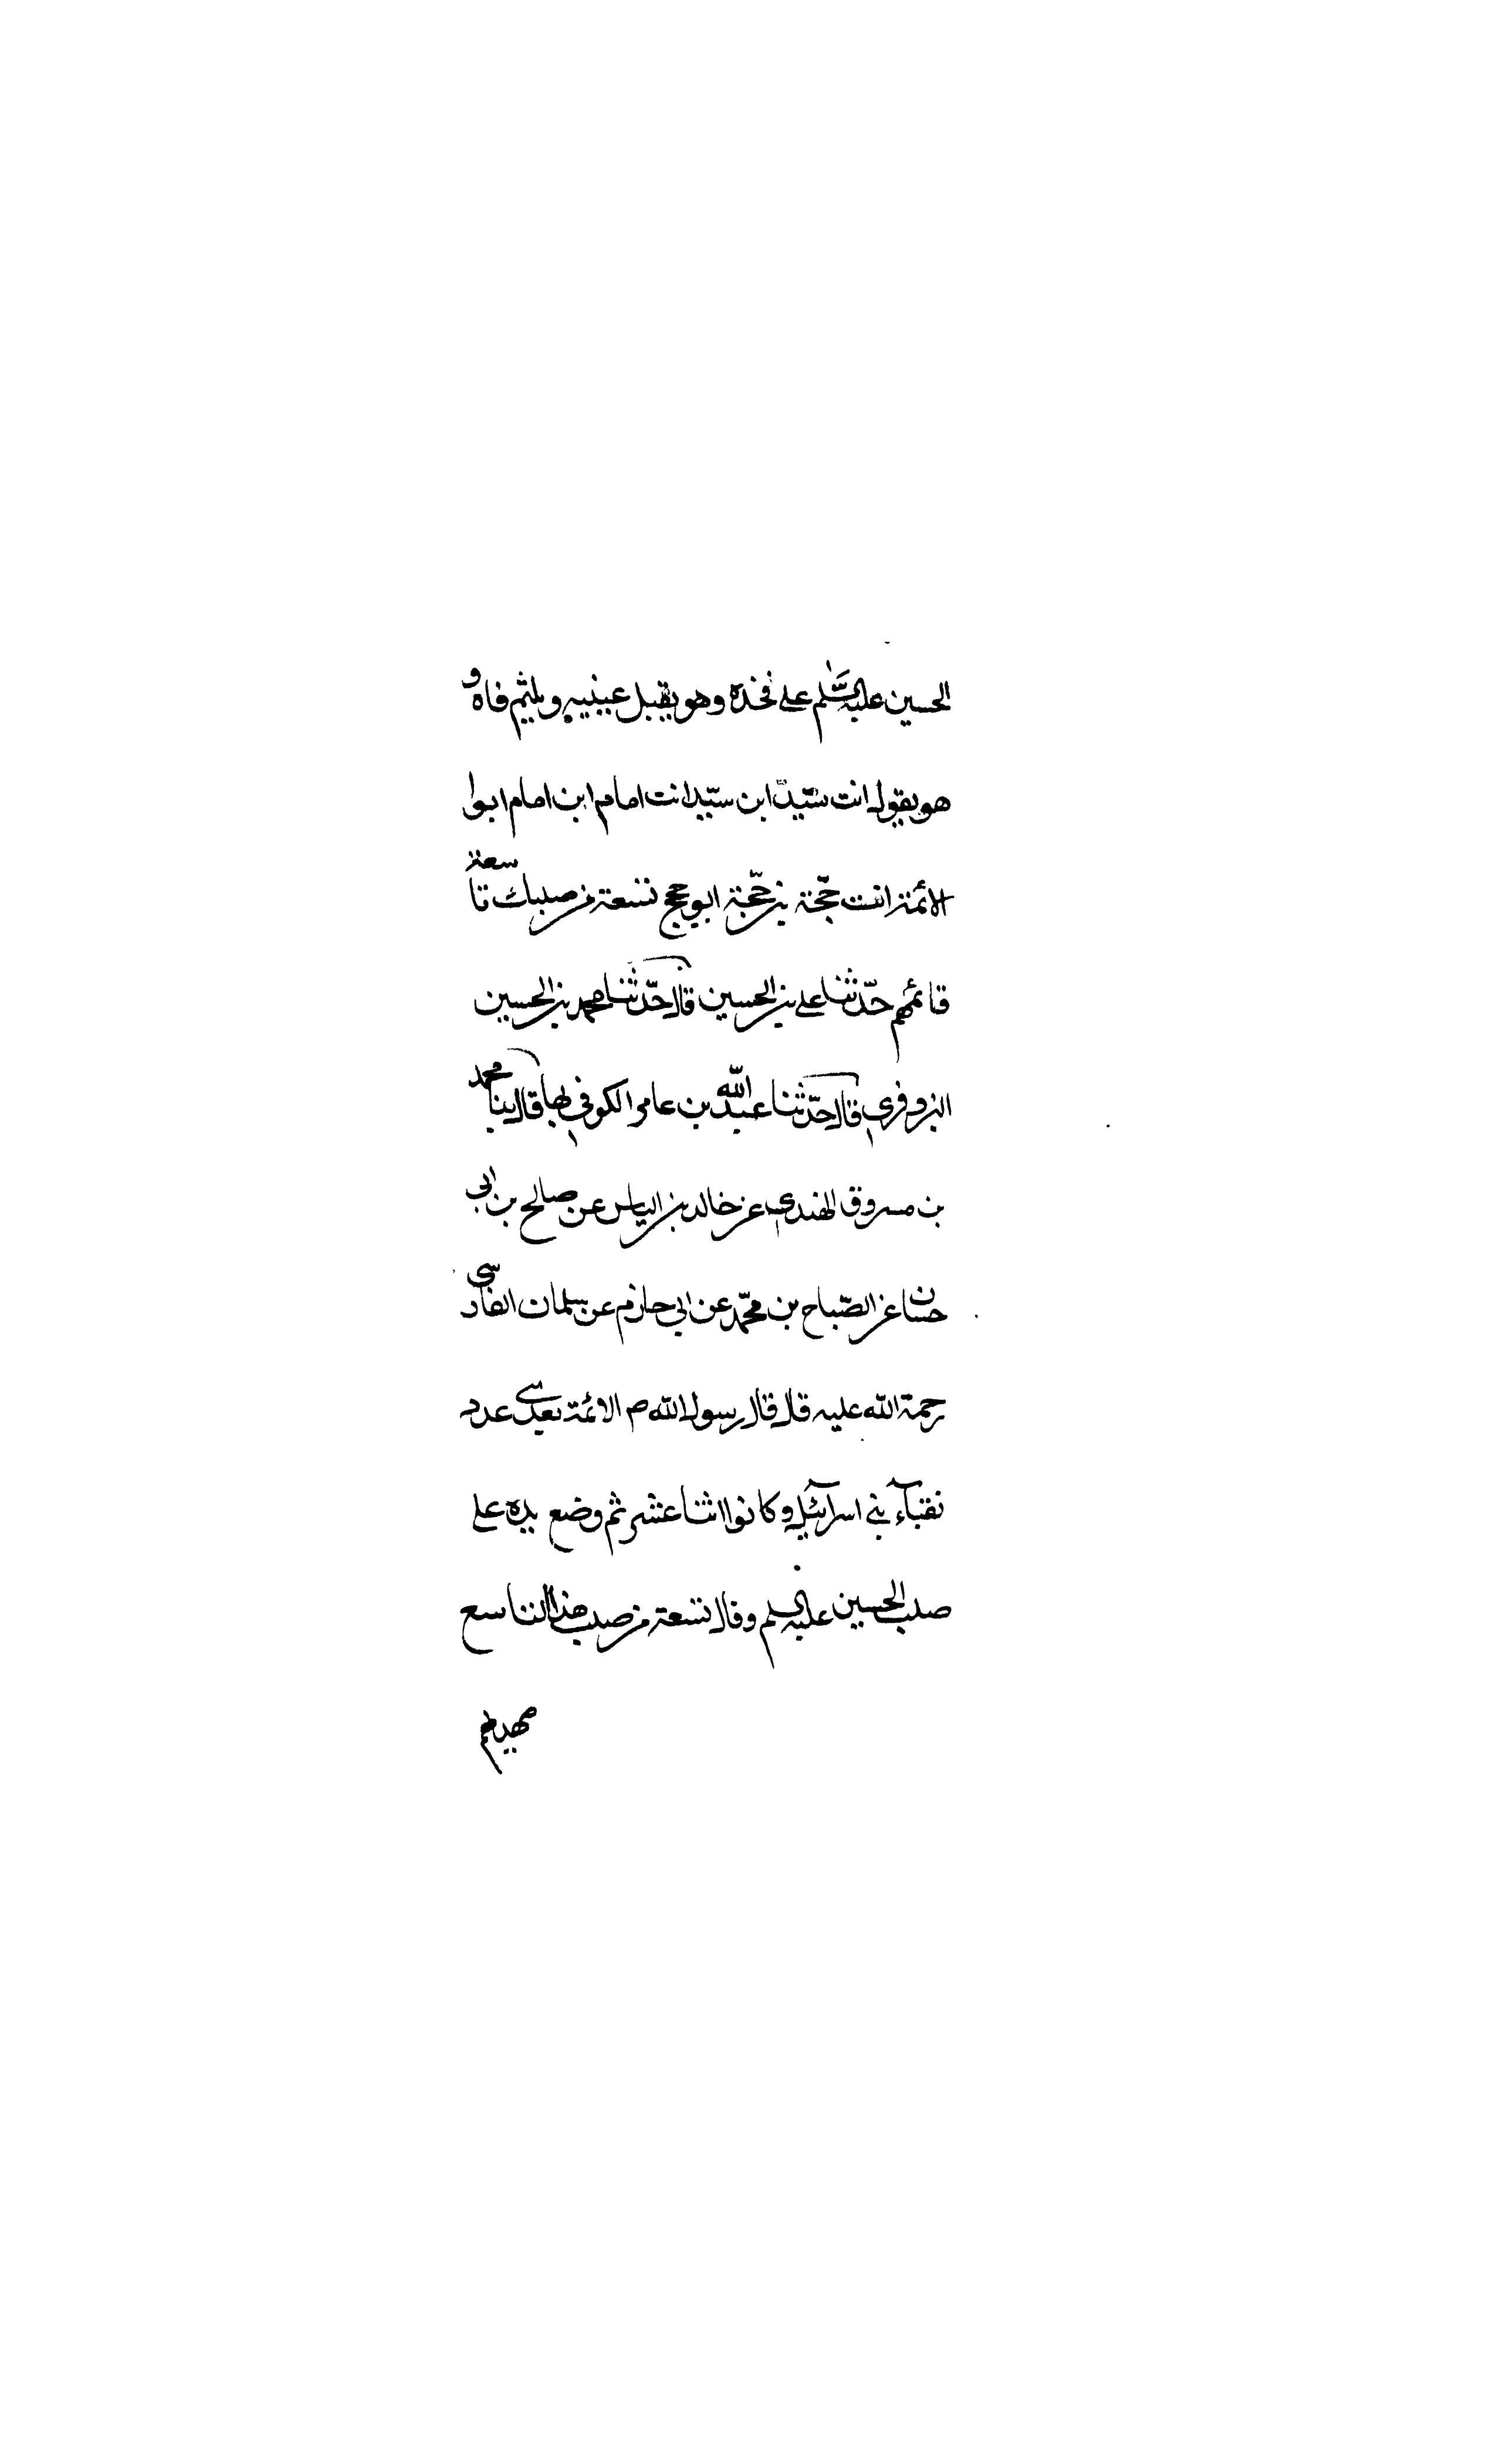 الحسين عليه السّلم على فخذه وهو يقبل عينيه ويلثم فاه و
هو يقول انت سيّد ابن سيّد انت امام ابن امام ابوا
الائمة انت حجّة بن حجّة ابو حجج تسعة من صلبك تاسعة
قائمهم حدّثنا على بن الحسين قال حدّثنا محمد بن الحسين
البزوفرى قال حدّثنا عبد الله بن عامر الكوفى بها قال محمد
بن مسروق الهندى عن خالد بن الياس عن صالح بن ابى
حسان عن الصّباح بن محمّد عن ابى حازم عن سلمان الفارسى
رحمة الله عليه قال قال رسول الله ص الائمة بعدى عدد
نقبآء بنى اسرآئيل وكانوا اثنا عشر ثم وضع يده على
صلب الحسين عليه السلم وقال تسعة من صلب هذا التاسع
مهديهم